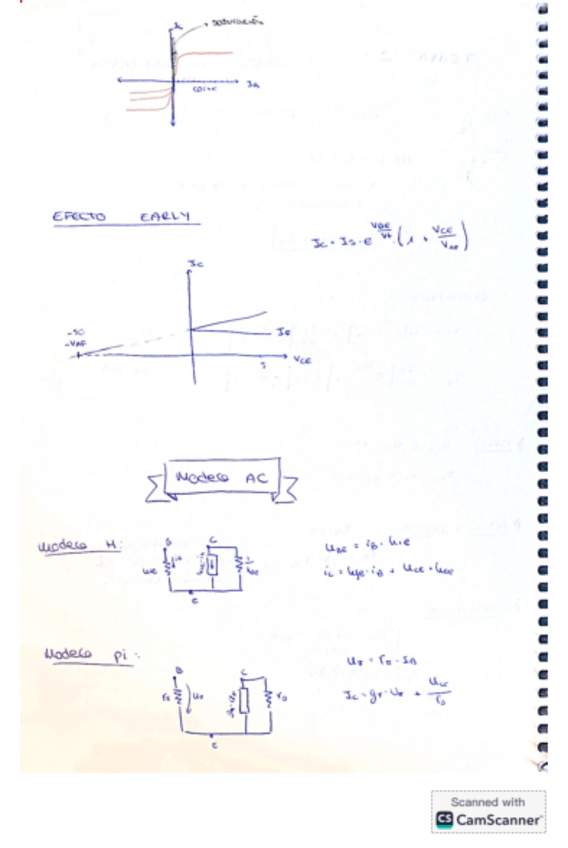 i
saturación
corte
EFECTO EARLY
Ic = Is · e^(VBE/Vt) · (1 + VCE/VAF)
Ic
-50
-VAF
5
VCE
Modelo AC
Modelo H:
B
C
hie
e
uBE = iB · hie
ic = hfe · iB + uCE · hoe
Modelo pi:
B
C
uπ
ro
e
uπ = rπ · IB
Ic = gπ · uπ + uce/ro
Scanned with
CS CamScanner